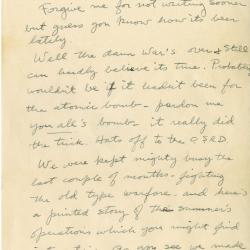 Forgive me for not writing sooner
but guess you know how its been
lately.
Well the damn War's over & Still
can hardly believe its true. Probably
wouldn't be if it hadn't been for
the atomic bomb - pardon me
you all's bomb it really did
the trick. Hats off to the OSRD.
We were kept mighty busy the
last couple of months - fighting
the old type warfare. and here's
a printed story of the summer's
operations which you might find